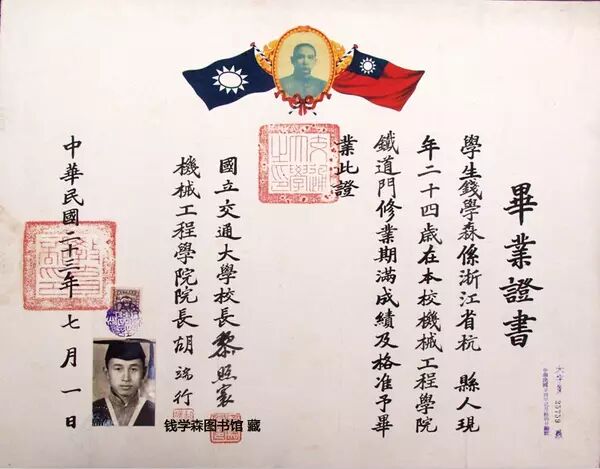 畢業證書
學生錢學森係浙江省杭　縣人現
年二十四歲在本校機械工程學院
鐵道門修業期滿成績及格准予畢
業此證
國立交通大學校長黎照寰
機械工程學院院長胡端行
中華民國二十三年七月一日
钱学森图书馆 藏